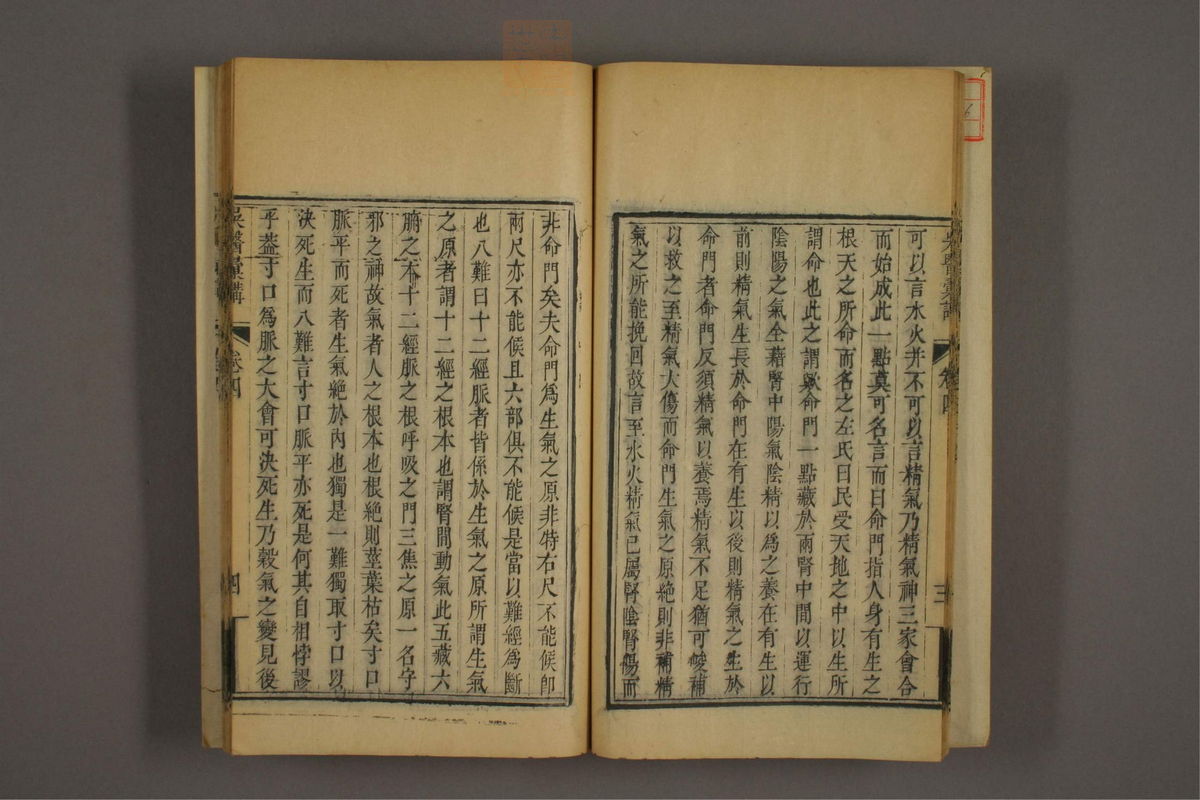 可以言水火并不可以言精氣乃精氣神三家會合
而始成此一點莫可名言而曰命門指人身有生之
根天之所命而名之左氏曰民受天地之中以生所
謂命也此之謂歟命門一點藏於兩腎中間以運行
陰陽之氣全藉腎中陽氣陰精以爲之養在有生以
前則精氣生長於命門在有生以後則精氣之生於
命門者命門反須精氣以養焉精氣不足猶可峻補
以救之至精氣大傷而命門生氣之原絶則非補精
氣之所能挽回故言至水火精氣已屬腎陰腎傷而
吳醫彙講
卷四
三
非命門矣夫命門爲生氣之原非特右尺不能候卽
兩尺亦不能候且六部俱不能候是當以難經爲斷
也八難曰十二經脈者皆係於生氣之原所謂生氣
之原者謂十二經之根本也謂腎間動氣此五藏六
腑之本十二經脈之根呼吸之門三焦之原一名守
邪之神故氣者人之根本也根絶則莖葉枯矣寸口
脈平而死者生氣絶於內也獨是一難獨取寸口以
決死生而八難言寸口脈平亦死是何其自相悖謬
乎蓋寸口爲脈之大會可決死生乃穀氣之變見後
吳醫彙講
卷四
四